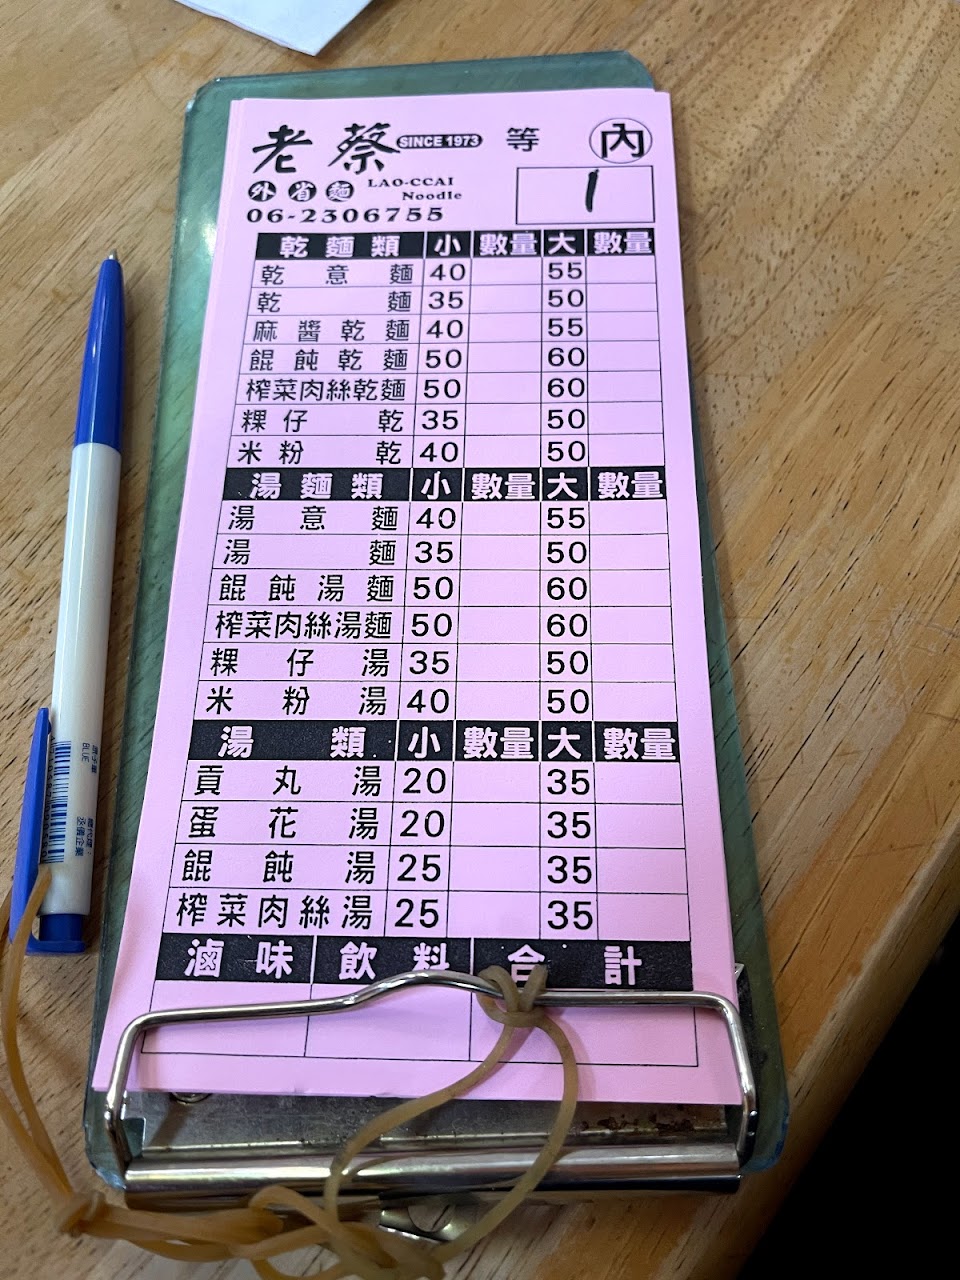 老蔡 SINCE 1973 等 內
外省麵 LAO-CCAI Noodle 1
06-2306755
乾麵類 小 數量 大 數量
乾意麵 40 55
乾麵 35 50
麻醬乾麵 40 55
餛飩乾麵 50 60
榨菜肉絲乾麵 50 60
粿仔乾 35 50
米粉乾 40 50
湯麵類 小 數量 大 數量
湯意麵 40 55
湯麵 35 50
餛飩湯麵 50 60
榨菜肉絲湯麵 50 60
粿仔湯 35 50
米粉湯 40 50
湯類 小 數量 大 數量
貢丸湯 20 35
蛋花湯 20 35
餛飩湯 25 35
榨菜肉絲湯 25 35
滷味 飲料 合計
BLUE